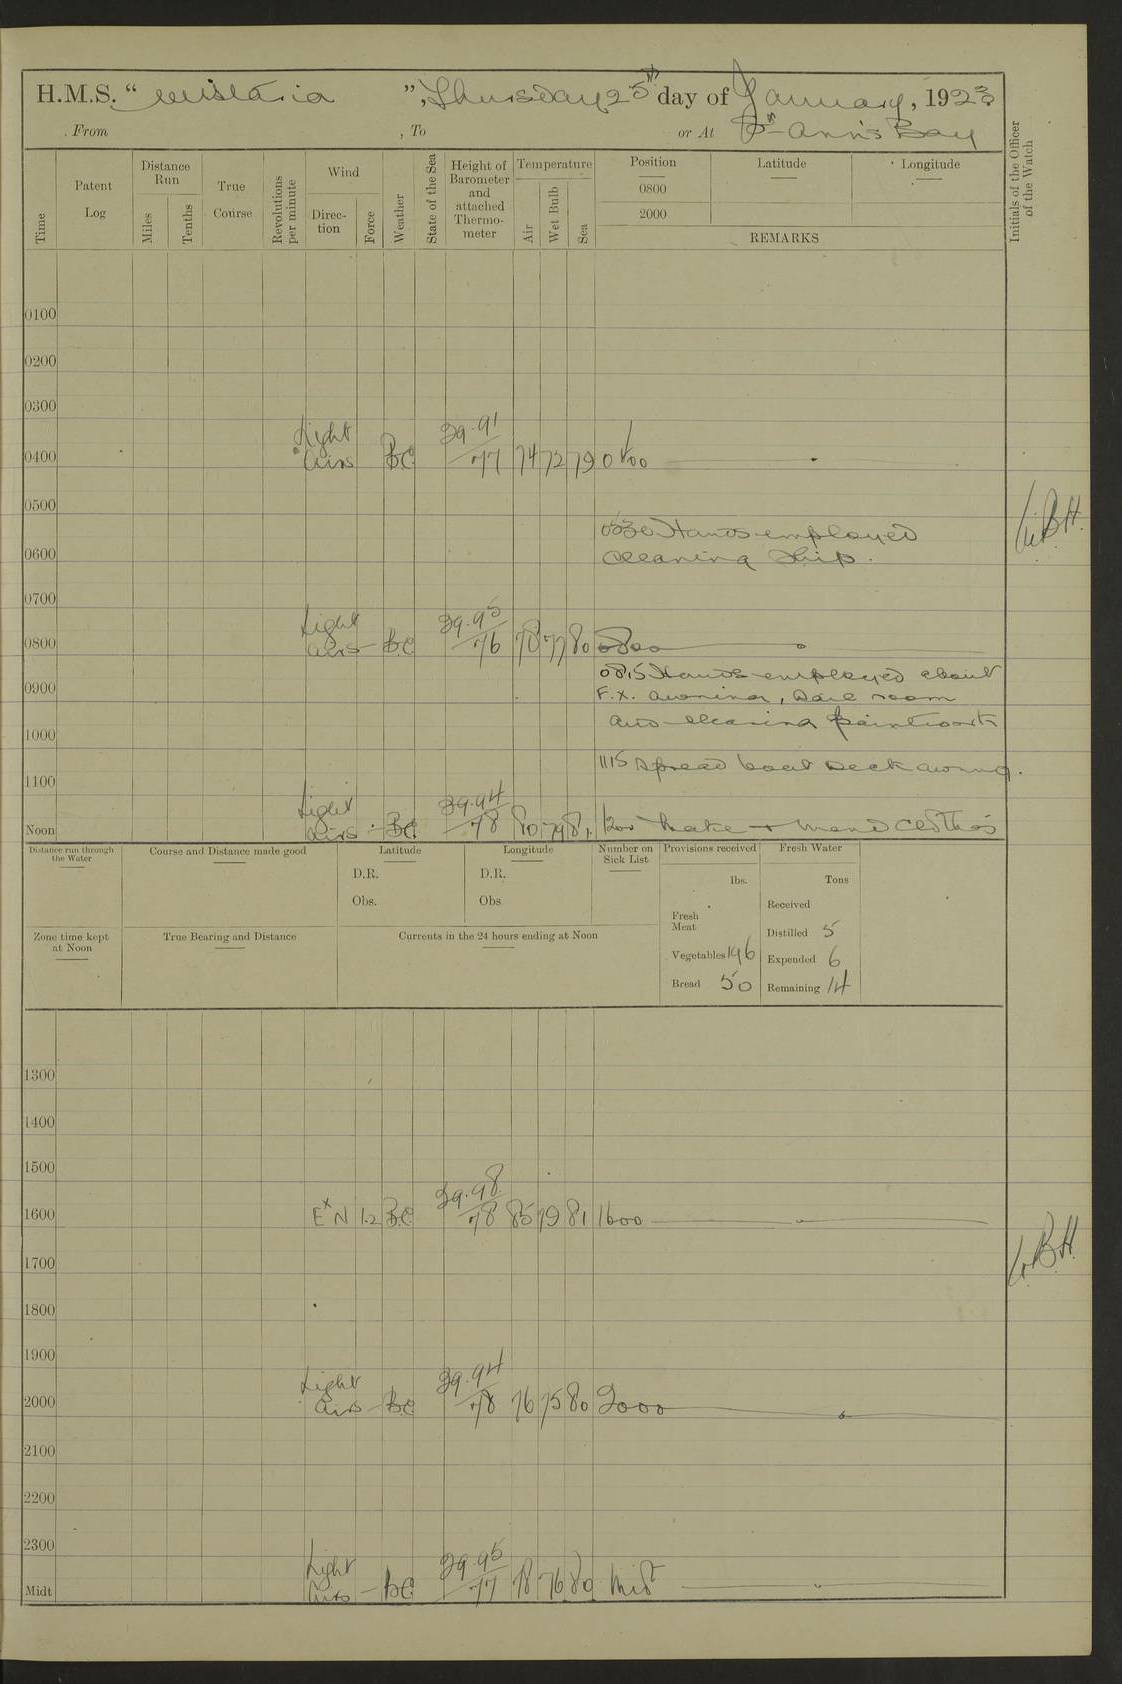 H.M.S. "Wistaria", Thursday 25th day of January, 1923
From , To or At St Ann's Bay
Time
Patent Log
Distance Run
Miles
Tenths
True Course
Revolutions per minute
Wind
Direc-tion
Force
Weather
State of the Sea
Height of Barometer and attached Thermo-meter
Temperature
Air
Wet Bulb
Sea
Position
0800
2000
Latitude
Longitude
REMARKS
Initials of the Officer of the Watch
0100
0200
0300
0400 Light airs BC 29.91 77 74 72 79 0400
0500
0530 Hands employed
0600 cleaning ship.
WBH.
0700
0800 Light airs - BC 29.95 76 78 77 80 0800
0815 Hands employed about
0900 F.X. awning,
and cleaning paintwork
1000
1115 Spread boat deck awning.
1100
Noon Light airs - BC 29.94 78 80 79 81 1200 Make + mend clothes
Distance run through the Water
Course and Distance made good
Latitude
D.R.
Obs.
Longitude
D.R.
Obs
Number on Sick List
Provisions received
lbs.
Fresh Meat
Vegetables 196
Bread 50
Fresh Water
Tons
Received
Distilled 5
Expended 6
Remaining 14
Zone time kept at Noon
True Bearing and Distance
Currents in the 24 hours ending at Noon
1300
1400
1500
1600 ExN 1.2 BC 29.98 78 85 79 81 1600
WBH
1700
1800
1900
2000 Light airs - BC 29.94 78 76 75 80 2000
2100
2200
2300
Midt Light airs - BC 29.95 77 78 76 80 Midt